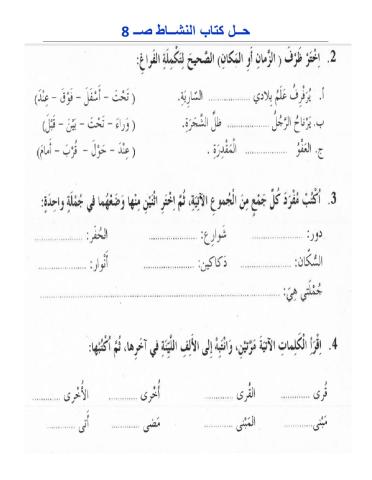 حـل كتاب النشـــاط صـــ 8
2. اِخْتَرْ ظَرْفَ ( الزَّمانِ أَوِ المَكانِ) الصَّحيحَ لِتَكْمِلَةِ الفَراغِ:
أ. يُرَفْرِفُ عَلَمُ بِلادي ................ السّارِيَةِ. (تَحْتَ - أَسْفَلَ - فَوْقَ - عِنْدَ)
ب. يَرْتاحُ الرَّجُلُ ................ ظِلِّ الشَّجَرَةِ. (وَراءَ - تَحْتَ - بَيْنَ - قَبْلَ)
ج. العَفْوُ ................ المَقْدِرَةِ . (عِنْدَ - حَوْلَ - قُرْبَ - أَمامَ)
3. اُكْتُبْ مُفْرَدَ كُلِّ جَمْعٍ مِنَ الجُموعِ الآتِيَةِ، ثُمَّ اِخْتَرِ اثْنَيْنِ مِنْها وَضَعْهُما في جُمْلَةٍ واحِدَةٍ:
دور: ................ شَوارِع: ................ الحُفَر: ................
السُّكّان: ................ دَكاكين: ................ أَنْوار: ................
جُمْلَتي هِيَ: ................
4. اِقْرَأِ الْكَلِماتِ الآتِيَةَ مَرَّتَيْنِ، وَانْتَبِهْ إِلى الأَلِفِ اللَّيِّنَةِ في آخِرِها، ثُمَّ اكْتُبْها:
قُرى ............ القُرى ............ أُخْرى ............ الأُخْرى ............
مَبْنى ............ المَبْنى ............ مَضى ............ أَتى ............